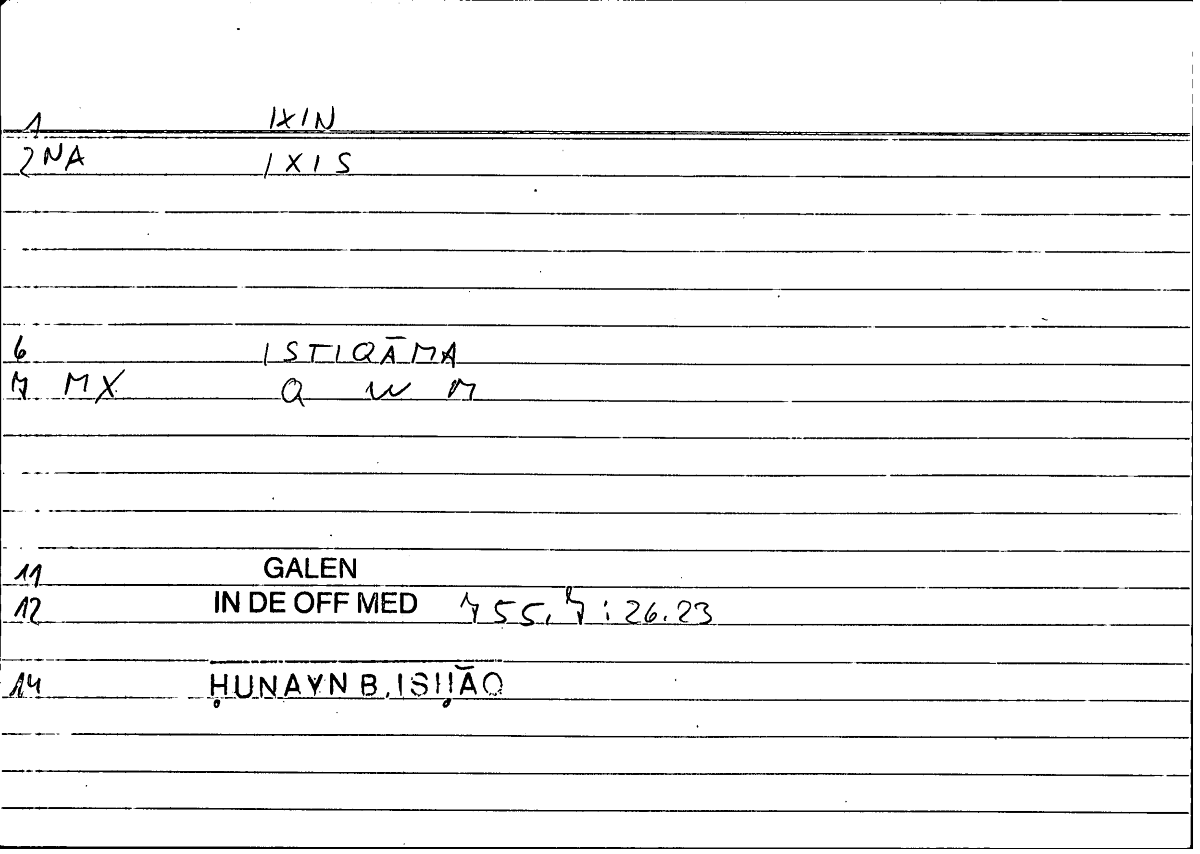 1 IXIN
2 NA IXIS
6 ISTIQĀMA
7 MX Q W M
11 GALEN
12 IN DE OFF MED 755,7:26.23
14 ḤUNAYN B. ISḤĀQ